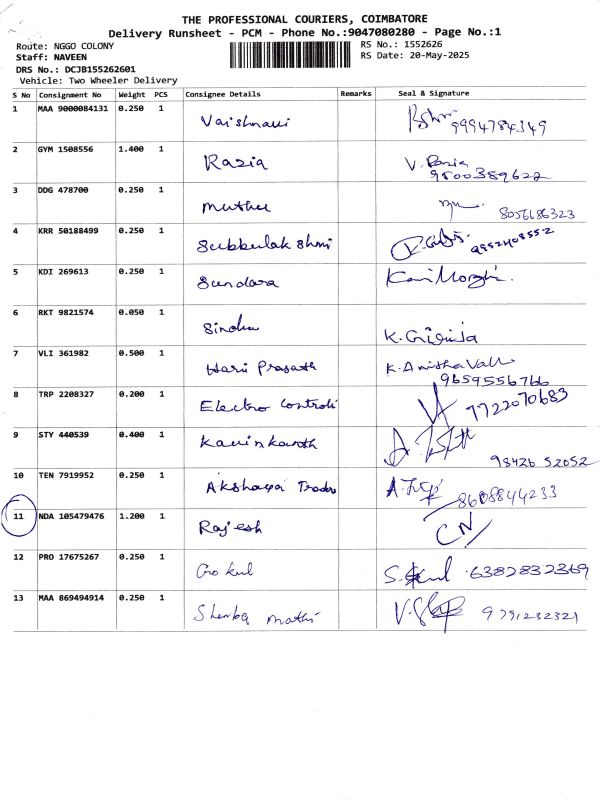 THE PROFESSIONAL COURIERS, COIMBATORE
Delivery Runsheet - PCM - Phone No.:9047080280 - Page No.:1
Route: NGGO COLONY
Staff: NAVEEN
DRS No.: DCJB155262601
Vehicle: Two Wheeler Delivery
RS No.: 1552626
RS Date: 20-May-2025
S No Consignment No Weight PCS Consignee Details Remarks Seal & Signature
1 MAA 9000084131 0.250 1 Vaishnavi 9994784349
2 GYM 1508556 1.400 1 Razia V. Razia
9500389622
3 DDG 478700 0.250 1 Muthu 8056686323
4 KRR 50188499 0.250 1 Subbulakshmi 9952408552
5 KDI 269613 0.250 1 Sundara
6 RKT 9821574 0.050 1 Sindhu K. Girija
7 VLI 361982 0.500 1 Hari Prasath K. Anitha Valli
9659556766
8 TRP 2208327 0.200 1 Electro Controls 7722070683
9 STY 440539 0.400 1 Kavinkanth 98426 52052
10 TEN 7919952 0.250 1 Akshaya Traders 8608844233
11 NDA 105479476 1.200 1 Rajesh CN
12 PRO 17675267 0.250 1 Gokul 6382832369
13 MAA 869494914 0.250 1 Shenba Mathi 9791232321